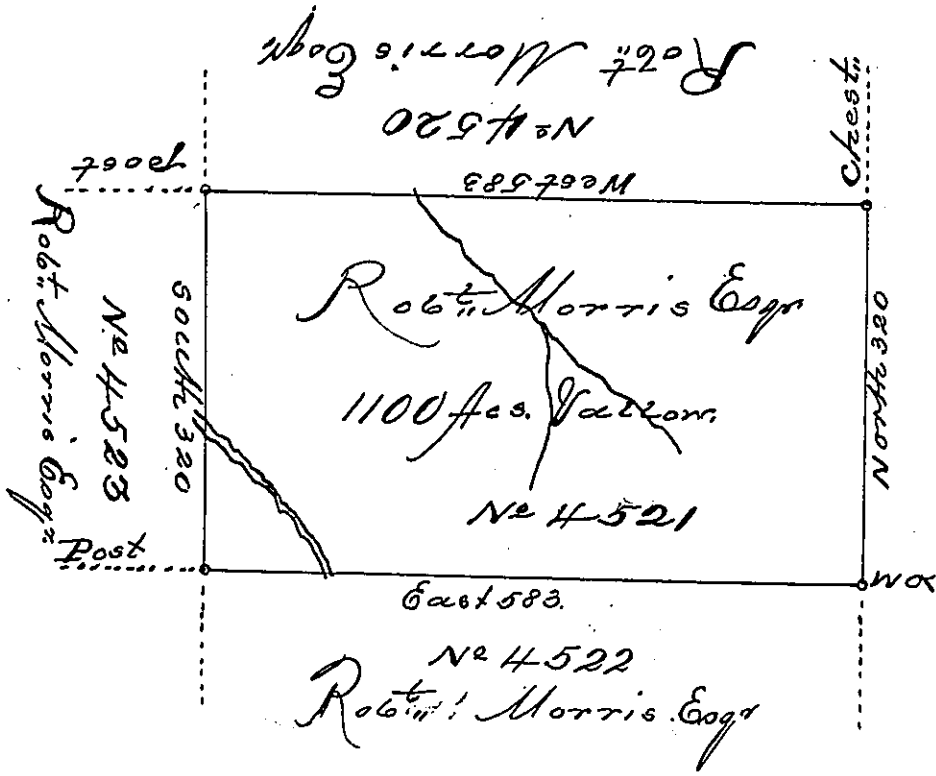 Robt Morris Esqr
No 4520
West 583
Chest
post
Robt Morris Esqr
No 4523
South 320
Robt Morris Esqr
1100 Acs. & allow.
No 4521
North 320
Post
East 583.
WO
No 4522
Robt Morris Esqr